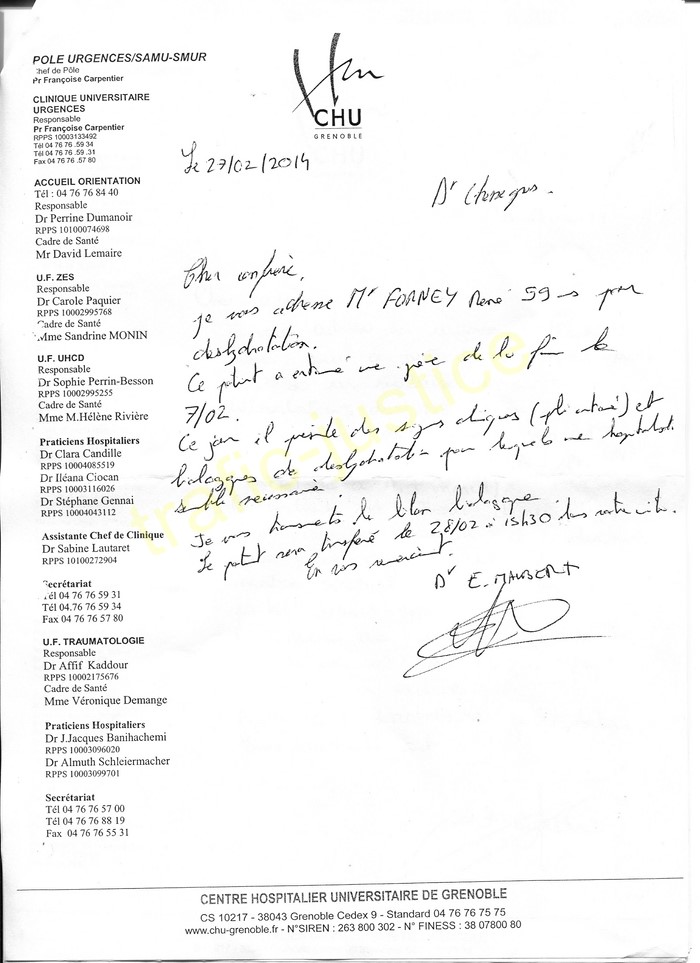 POLE URGENCES/SAMU-SMUR
Chef de Pôle
Pr Françoise Carpentier
CLINIQUE UNIVERSITAIRE
URGENCES
Responsable
Pr Françoise Carpentier
RPPS 10003133492
Tél 04 76 76 .59 34
Tél 04 76 76 .59 .31
Fax 04 76 76 .57 80
ACCUEIL ORIENTATION
Tél : 04 76 76 84 40
Responsable
Dr Perrine Dumanoir
RPPS 10100074698
Cadre de Santé
Mr David Lemaire
U.F. ZES
Responsable
Dr Carole Paquier
RPPS 10002995768
Cadre de Santé
Mme Sandrine MONIN
U.F. UHCD
Responsable
Dr Sophie Perrin-Besson
RPPS 10002995255
Cadre de Santé
Mme M.Hélène Rivière
Praticiens Hospitaliers
Dr Clara Candille
RPPS 10004085519
Dr Iléana Ciocan
RPPS 10003116026
Dr Stéphane Gennai
RPPS 10004043112
Assistante Chef de Clinique
Dr Sabine Lautaret
RPPS 10100272904
Secrétariat
Tél 04 76 76 59 31
Tél 04.76 76 59 34
Fax 04 76 76 57 80
U.F. TRAUMATOLOGIE
Responsable
Dr Affif Kaddour
RPPS 10002175676
Cadre de Santé
Mme Véronique Demange
Praticiens Hospitaliers
Dr J.Jacques Banihachemi
RPPS 10003096020
Dr Almuth Schleiermacher
RPPS 10003099701
Secrétariat
Tél 04 76 76 57 00
Tél 04 76 76 88 19
Fax 04 76 76 55 31
CHU
GRENOBLE
Le 27/02/2014
Dr
Cher confrère,
je vous adresse Mr FORNEY René 59 ans pour
deshydratation.
Ce patient a entamé une grève de la faim le
7/02.
Ce jour il présente des signes cliniques (pli cutané) et
biologiques de deshydratation pour lesquels une hospitalisat.
semble nécessaire.
Je vous transmets le bilan biologique.
Le patient sera transféré le 28/02 à 15h30 dans votre unité.
En vos remerciant.
Dr E. MAUBERT
trafic-justice
CENTRE HOSPITALIER UNIVERSITAIRE DE GRENOBLE
CS 10217 - 38043 Grenoble Cedex 9 - Standard 04 76 76 75 75
www.chu-grenoble.fr - N°SIREN : 263 800 302 - N° FINESS : 38 07800 80